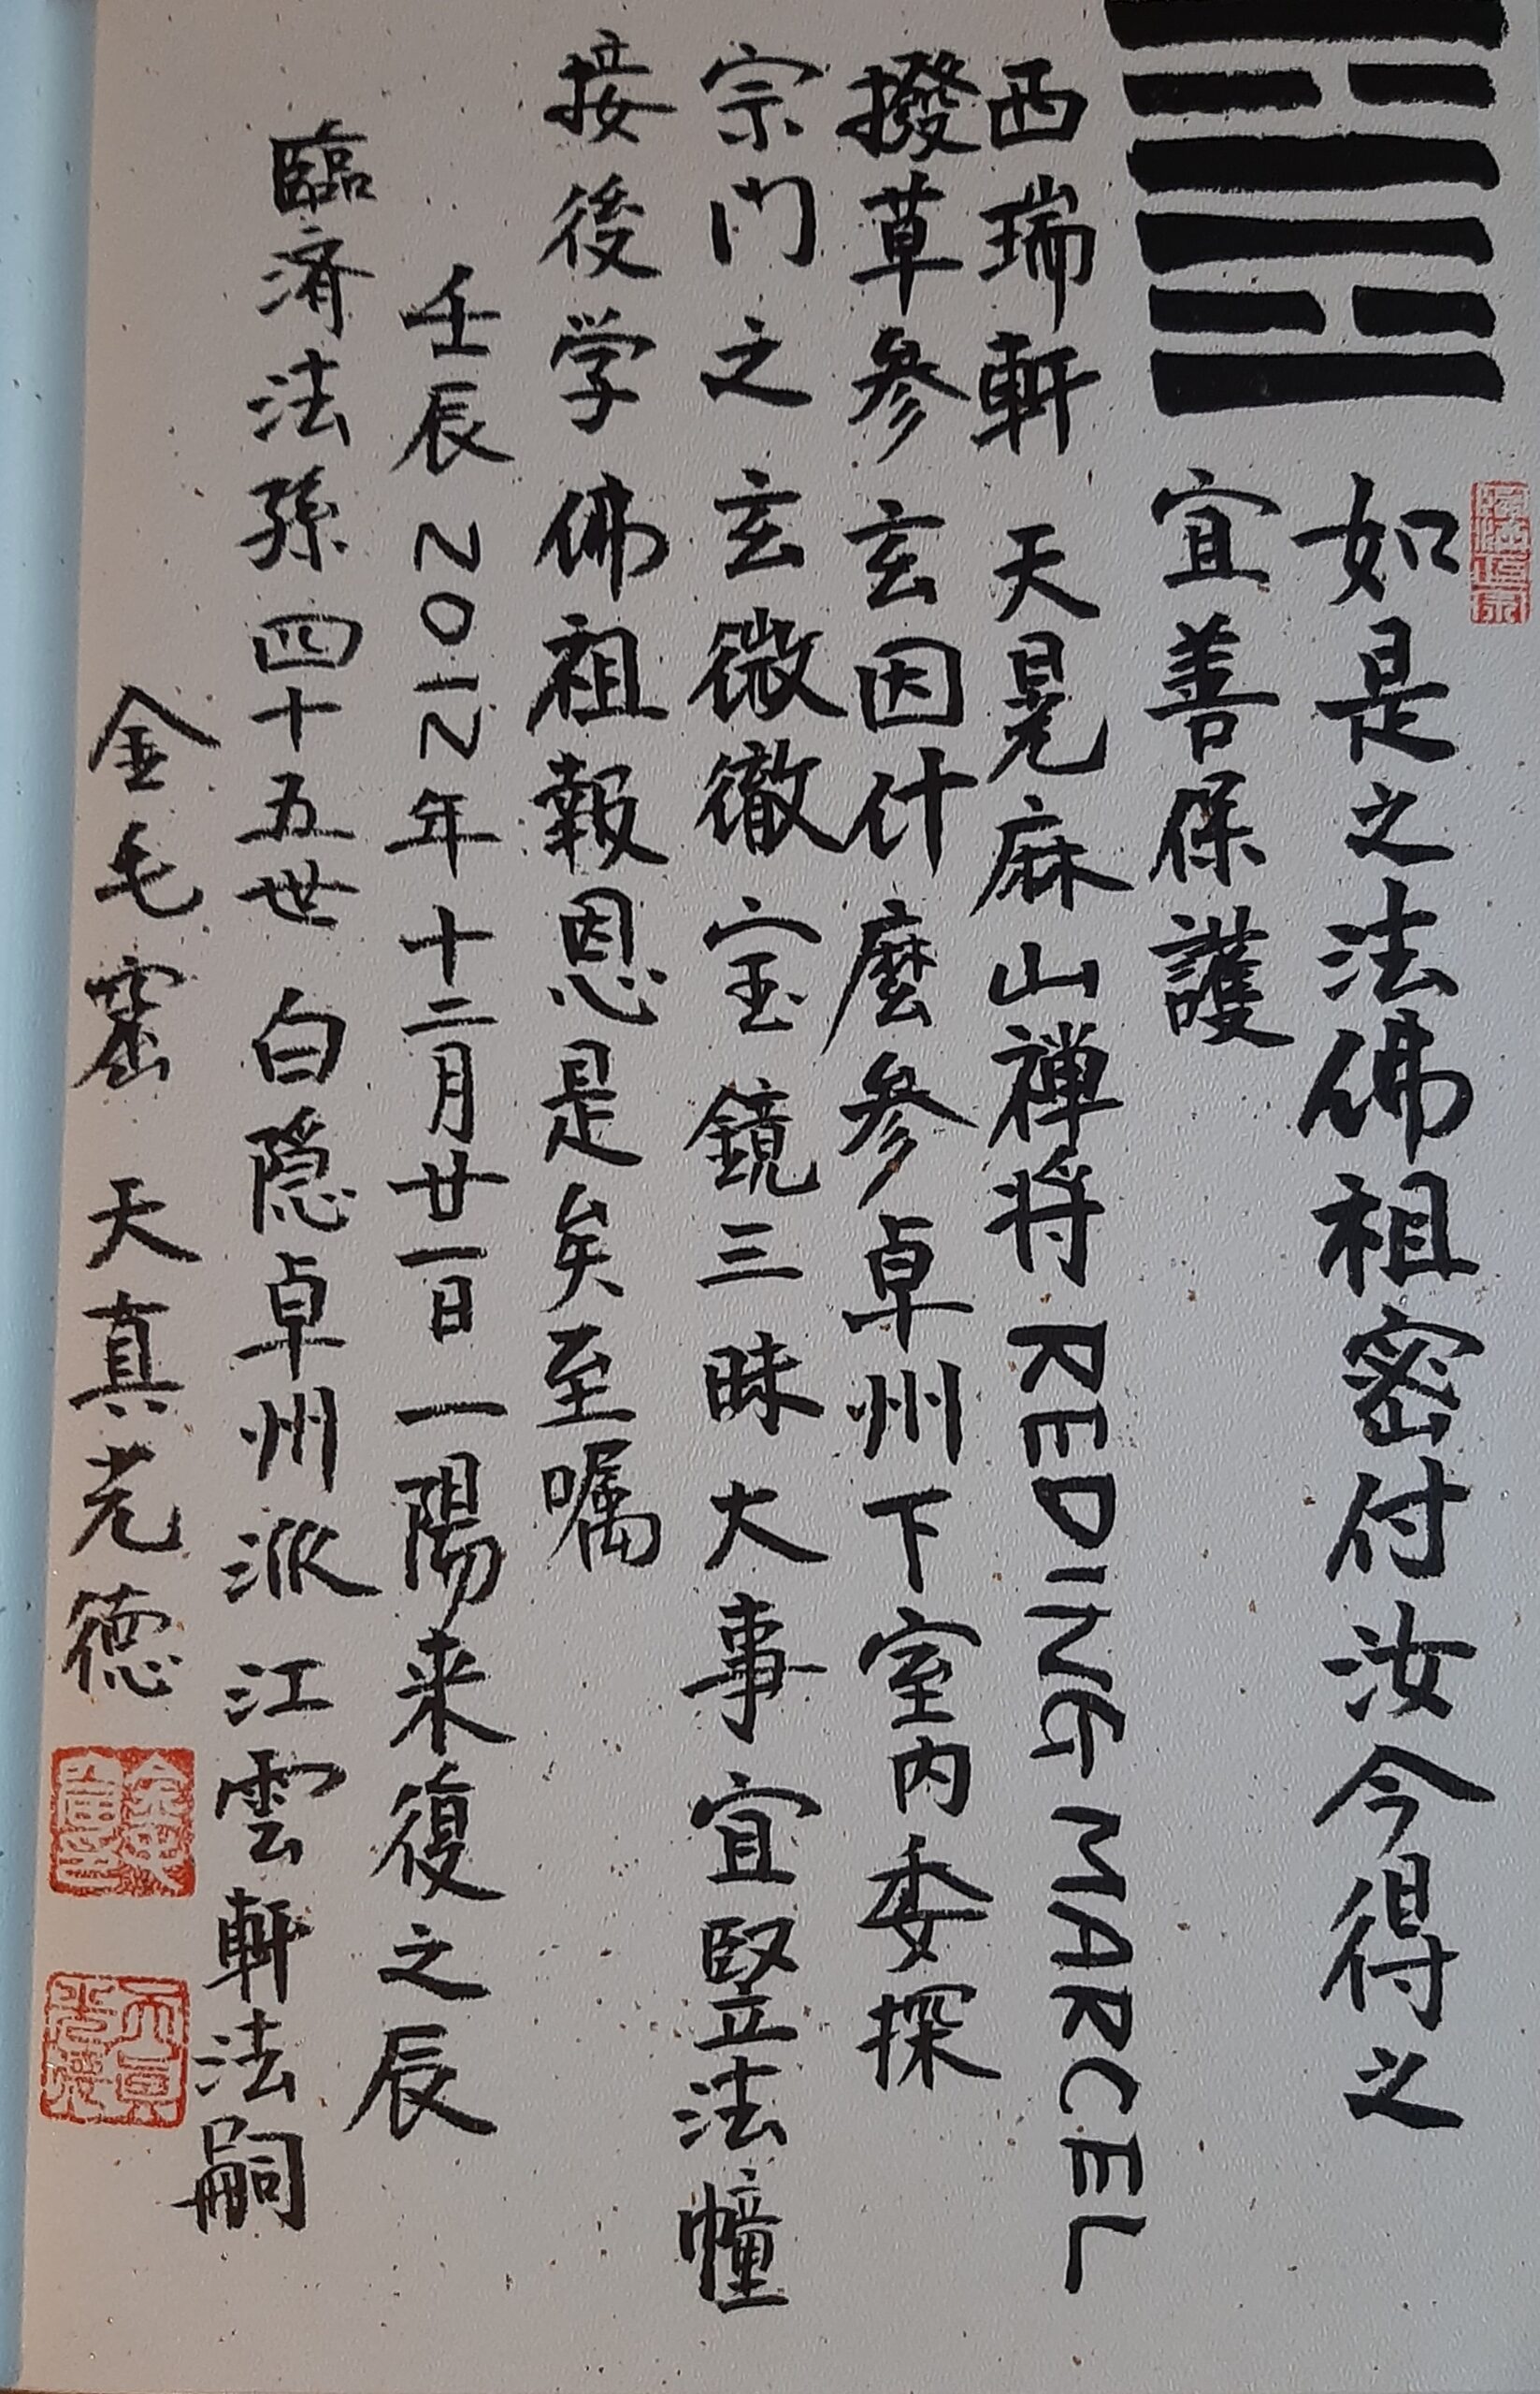 如是之法佛祖密付汝今得之
宜善保護
西瑞軒 天晃麻山禅将 REDING MARCEL
撥草参玄因什麼参卓州下室内委探
宗门之玄微徹宝鏡三昧大事宜竪法幢
接後学佛祖報恩是矣至嘱
壬辰 2012年十二月廿一日一陽来復之辰
臨済法孫四十五世 白隠卓州派 江雲軒法嗣
金毛窟 天真光德